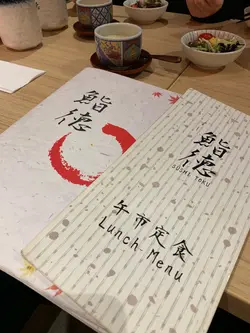 鮨
德
鮨
德
SUSHI TOKU
午市定食
Lunch Menu